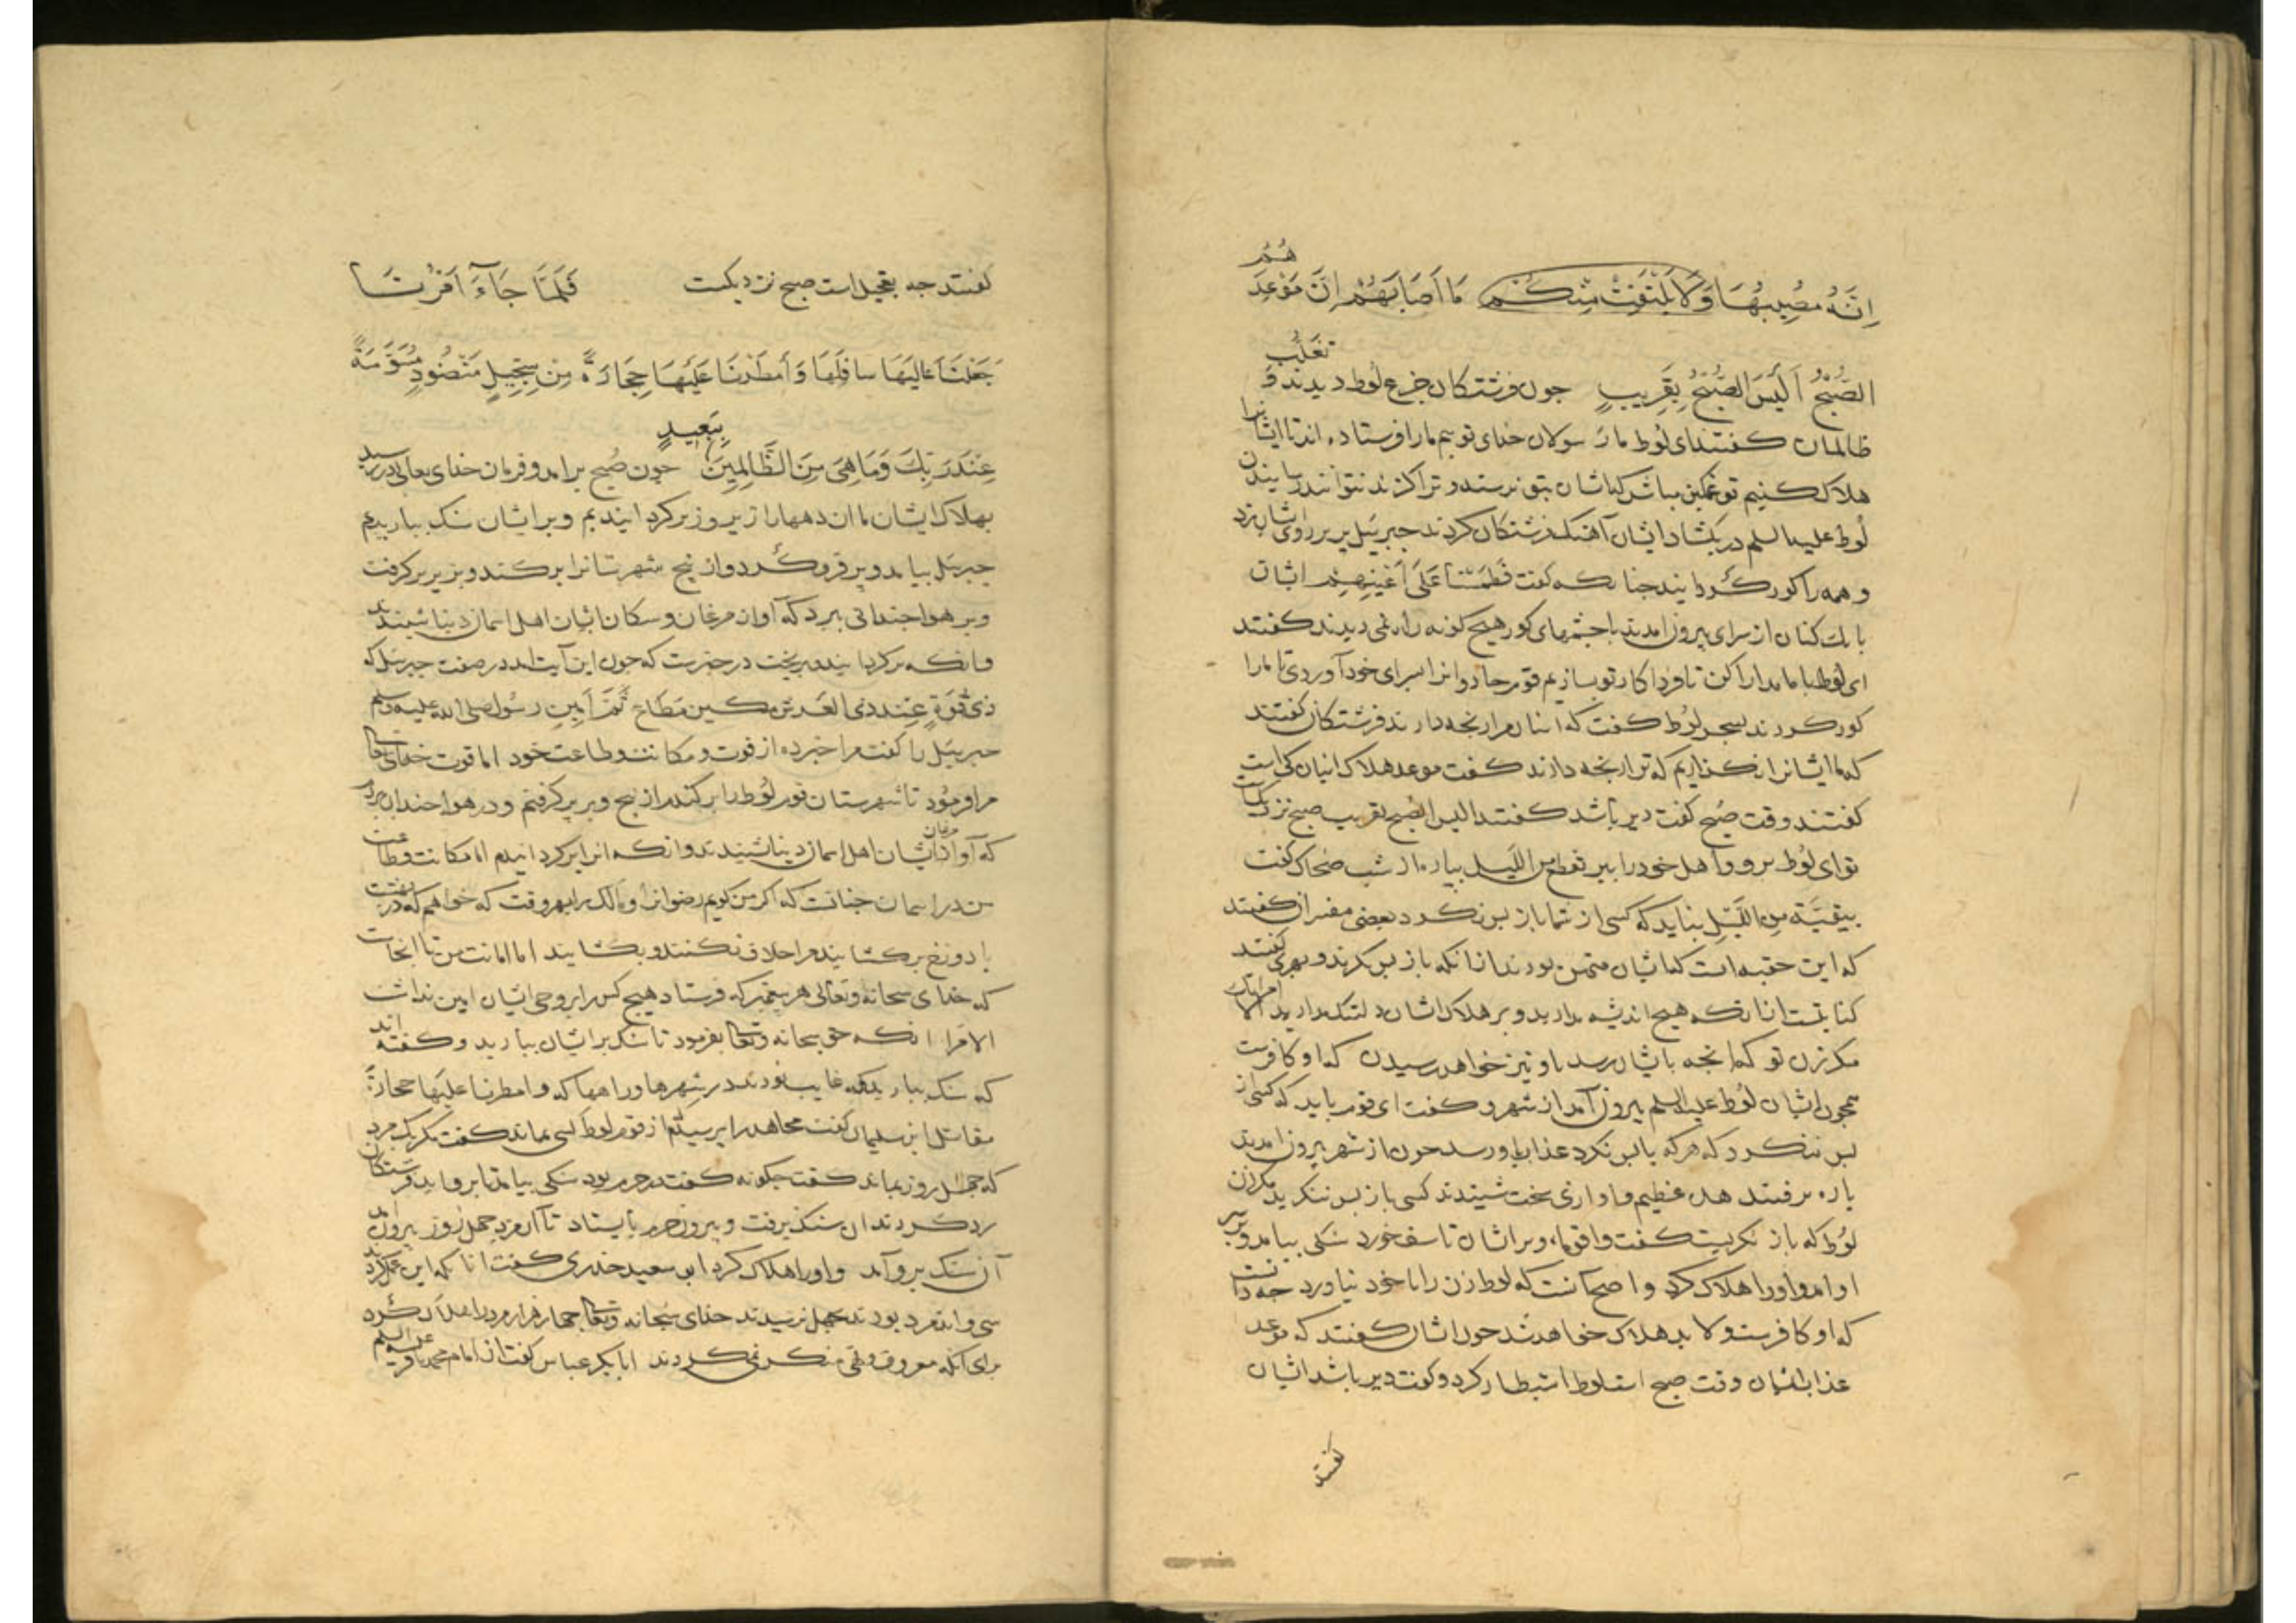 هُمُ
اِنَّهُ مصُیبُهَا وَلَا یَلتَفِتْ مِنْکُمْ مَا اَصَابَهُمْ اِنَّ مَوْعِدَ
الصُّبْحُ اَلَیْسَ الصُّبْحُ بِقَرِیبٍ جون فرشتکان جزع لوط دیدند و تغلب
ظالمان کفتند ای لوط ما رسولان خدای توییم ما را فرستاده اند تا ایشانرا
هلاک کنیم تو غمکین مباش که ایشان بتو نرسند و ترا کزند نتوانند رسانیدن
لوط علیه السلم در بکشاد ایشان آهنک فرشتکان کردند جبرییل پر بر روی ایشان زد
و همه را کور کردانید جنانکه کفت فطمسنا علی اعینهم ایشان
بانک کنان از سرای بیرون امدند با جشمهای کور هیج کونه راه نمی دیدند کفتند
ای لوط با ما مدارا کن تا فردا کار تو بسازیم قوم جادوانرا بسرای خود آوردی تا ما را
کور کردند بسحر لوط کفت که اینان مرا رنجه دارند فرشتکان کفتند
که ما ایشانرا نکذاریم که ترا رنجه دارند کفت موعد هلاک ایشان کی است
کفتند وقت صبح کفت دیر باشد کفتند الیس الصبح بقریب صبح نزدیکست
تو ای لوط برو و اهل خود را ببر بقطع من اللیل بپاره از شب ضحاک کفت
ببقیّة من اللیل نباید که کسی از شما باز بس نکرد بعضی مفسران کفتند
که این حقیقه است که ایشان متهمن بودند از انکه باز بس نکرند و بهری کفتند
کنایتست از انکه هیج اندیشه مدارید و بر هلاک ایشان دلتنک مدارید الا امراتک
مکر زن تو که انجه بایشان رسد باو نیز خواهد رسیدن که او کافرست
همجون ایشان لوط علیه السلم بیرون آمد از شهر و کفت ای قوم باید که کسی از
بس ننکرد که هر که با بس نکرد عذاب باو رسد جون از شهر بیرون امدند
باره برفتند هدّ عظیم و اوازی سخت شنیدند کسی باز بس ننکرید مکر زن
لوط که باز نکریست کفت واقوماه و بر ایشان تاسف خورد سنکی بیامد و بر سر
او امد و او را هلاک کرد و اصح آنست که لوط زن را با خود نیاورد جه دانست
که او کافرست و لا بد هلاک خواهد شد جون ایشان کفتند که موعد
عذاب ایشان وقت صبح است لوط استبطا کرد و کفت دیر باشد ایشان
کفتند
کفتند جه بتعجیل است صبح نزدیکست فَلَمَّا جَاءَ اَمْرُنَا
جَعَلْنَا عَالِیَهَا سافِلَهَا وَأَمطَرْنَا عَلَیْهَا حِجَارَةً مِن سِجِّیلٍ مَنْضُودٍ مُسَوَّمَةً
عِنْدَ رَبِّكَ وَمَا هِیَ مِنَ الظَّالِمِینَ بِبَعِیدٍ جون صبح برامد و فرمان خدای تعالی در رسید
بهلاک ایشان ما ان دهها را زیر و زبر کردانیدیم و بر ایشان سنک ببارییم
جبرییل بیامد و پر فرو کرد و از بیخ شهرستانرا برکند و بزیر پر کرفت
و بر هوا جندانی ببرد که آواز مرغان و سکان ایشان اهل اسمان دنیا شنیدند
وانکه برکردانید و بریخت در خبرست که جون این آیت امد در صفت جبرییل که
ذی قوةٍ عند ذی العرش مکین مطاع ثَمّ امین رسول صلی الله علیه وسلم
جبرییل را کفت مرا خبر ده از قوت و مکانت و طاعت خود اما قوت خدای تعالی
مرا فرمود تا شهرستان قوم لوط را برکندم از بیخ و بر پر کرفتم و در هوا جندان ببردم
که آواز مرغان ایشان اهل اسمان دنیا شنیدند وانکه انرا برکردانیدم اما مکانت و طاعت
من در اسمان جنانست که اکر من کویم رضوانرا و مالک را بهر وقت که خواهم که در بهشت
یا دوزخ برکشایند مرا خلاف نکنند و بکشایند اما امانت من تا انجاست
که خدای سبحانه وتعالی هر پیغمبر که فرستاد هیج کس را بر وحی ایشان امین نداشت
الا مرا انکه حق سبحانه وتعالی بفرمود تا سنک بر ایشان ببارید و کفته اند
که سنک ببارید که غایب بودند در شهرها و راهها که و امطرنا علیها حجارةً
مقاتل ابن سلیمان کفت مجاهد را پرسیدم از قوم لوط کسی بماند کفت مکر یک مرد
که جهل روز بماند کفت جکونه کفت در حرم بود سنکی بیامد تا برو اید فرشتکان
رد کردند ان سنک برفت و بیرون حرم بایستاد تا آن مرد جهل روز بیرون آمد
آن سنک برو آمد و او را هلاک کرد ابو سعید خدری کفت انانکه این عمل کردند
سی و اند مرد بودند بجهل نرسیدند خدای سبحانه وتعالی جهار هزار مرد را هلاک کرد
برای آنکه معروف و نهی منکر نمی کردند ابابکر عباس کفت از امام محمد باقر علیه السلم